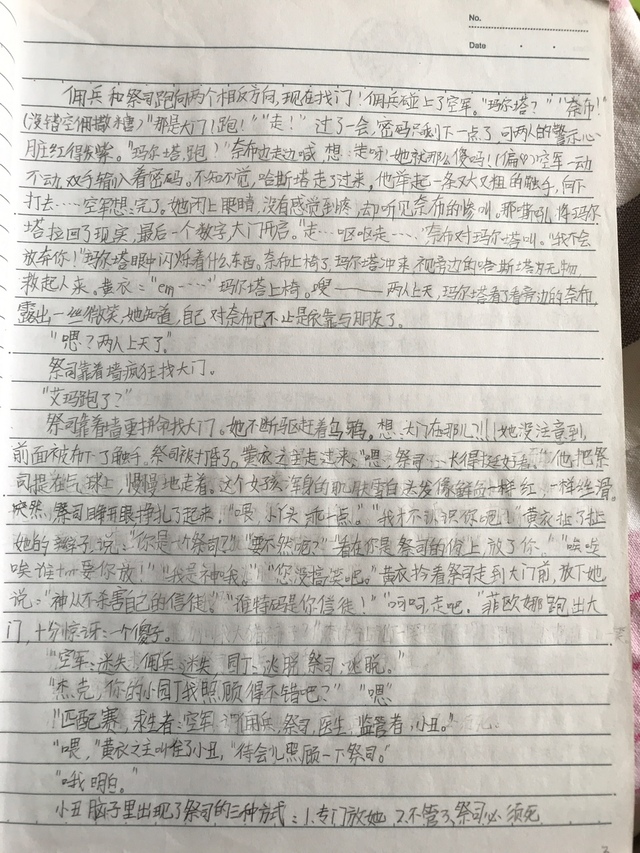 No.
Date
佣兵和祭司跑向两个相反方向,现在找门!佣兵碰上了空军。"玛尔塔?""奈布!"
(没错空佣撒糖)"那是大门!跑!""走!"过了一会,密码只剩下一点了,可两人的警示心
脏红得发紫。"玛尔塔,跑!"奈布边走边喊,想:走呀!她就那么傻吗!(偏ψ)空军一动
不动,双手输入着密码。不知不觉,哈斯塔走了过来,他举起一条又大又粗的触手,向下
打去……空军想:完了。她闭上眼睛,没有感觉到疼,却听见奈布的惨叫。那嘶吼,将玛尔
塔拉回了现实,最后一个数字,大门开启。"走…呕呕走……"奈布对玛尔塔叫。"我不会
放弃你!"玛尔塔眼中闪烁着什么东西。奈布上椅了,玛尔塔冲来,视旁边的哈斯塔为无物,
救起人来。黄衣:"em……"玛尔塔上椅。嗖———两人上天,玛尔塔看了看旁边的奈布,
露出一丝微笑,她知道,自己对奈布已不止是依靠与朋友了。
"嗯?两人上天了。"
祭司靠着墙疯狂找大门。
"艾玛跑了?"
祭司靠着墙更拼命找大门。她不断驱赶着乌鸦。想:大门在哪儿?!!!她没注意到,
前面被布下了触手。祭司被打昏了。黄衣之主走过来,"喂,祭司……长得挺好看?"他把祭
司提在气球上,慢慢地走着。这个女孩浑身的肌肤雪白,头发像鲜血一样红,一样丝滑。
突然,祭司睁开眼挣扎了起来,"喂,小丫头,乖一点。""我才不认识你吧!"黄衣扯了扯
她的辫子,说:"你是一位祭司?""要不然呢?""看在你是祭司的份上,放了你。""唉唉
唉谁要你放!""我是神哦。""您没搞笑吧。"黄衣拎着祭司走到大门前,放下她,
说:"神从不杀害自己的信徒。""谁特码是你信徒!""呵呵,走吧。"菲欧娜跑出大
门,十分惊讶:一个傻子。
"空军:迷失,佣兵:迷失 园丁:逃脱 祭司:逃脱。"
"杰克,你的小园丁我照顾得不错吧?""嗯"
"匹配赛,求生者:空军,佣兵,祭司,医生,监管者:小丑。"
"喂,"黄衣之主叫住了小丑,"待会儿照顾一下祭司。"
"哦,明白。"
小丑脑子里出现了祭司的三种方式:1.专门放她,2.不管了,祭司必须死
3